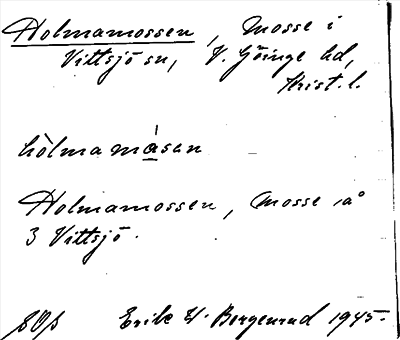 Holmamossen, Mosse i
Vittsjö sn, V. Göinge hd,
Krist. l.
hòlmamåsan
Holmamossen, Mosse på
3 Vittsjö.
Erik W. Borgenrud 1945.